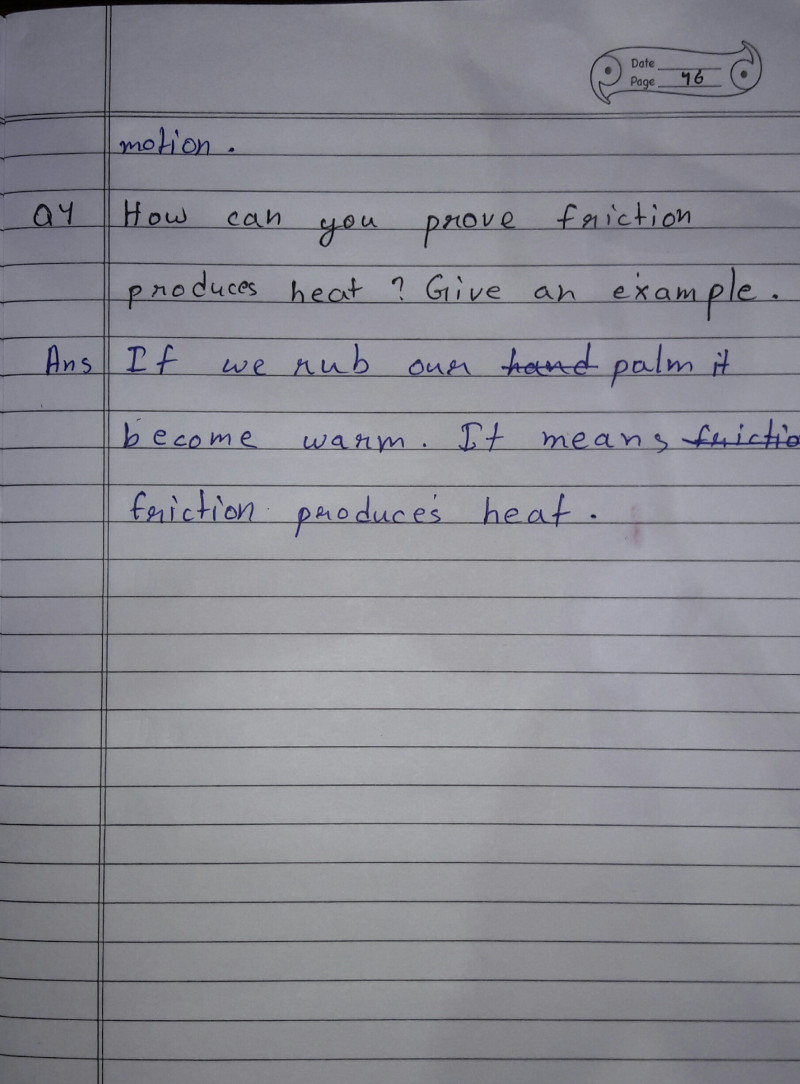 Date
Page 46
motion.
Q4 How can you prove friction
produces heat? Give an example.
Ans If we rub our hand palm it
become warm. It means frictio
friction produces heat.